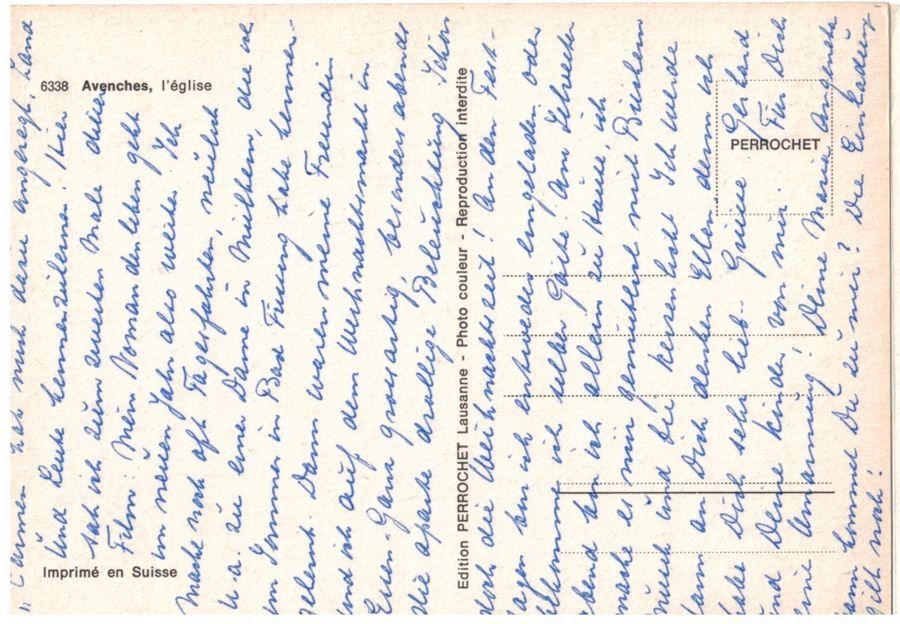 6338 Avenches, l'église
Imprimé en Suisse
Edition PERROCHET Lausanne - Photo couleur - Reproduction interdite
PERROCHET
hat mich dazu angeregt, Land
und Leute kennenzulernen. Hier
sah ich zum zweiten Male diesen
Film. Mein Nomadenleben geht
im neuen Jahr also weiter. Ich
mache noch oft Tagesfahrten, neulich
u. a. zu einer Dame in Mülheim, die ich
im Sommer in Bad Füssing habe kennen-
gelernt. Dann waren meine Freundin
und ich auf dem Weihnachtsmarkt in
Essen. Ganz grossartig, besonders abends
die aparte Beleuchtung. Schön
doch die Weihnachtszeit! An den Fest-
tagen bin ich entweder eingeladen oder
bekomme ich selber Gäste. Am
abend bin ich allein zu Hause, ich
mache es mir gemütlich mit Büchern
Musik und Kerzen Ich werde
dann an Dich denken Ellen, denn ich
habe Dich sehr lieb. Grüsse Gerhard
und Deine Kinder von mir. Für Dich
eine Umarmung! Deine Mama
Wann kommst Du zu mir? Die Einladung
gilt noch!